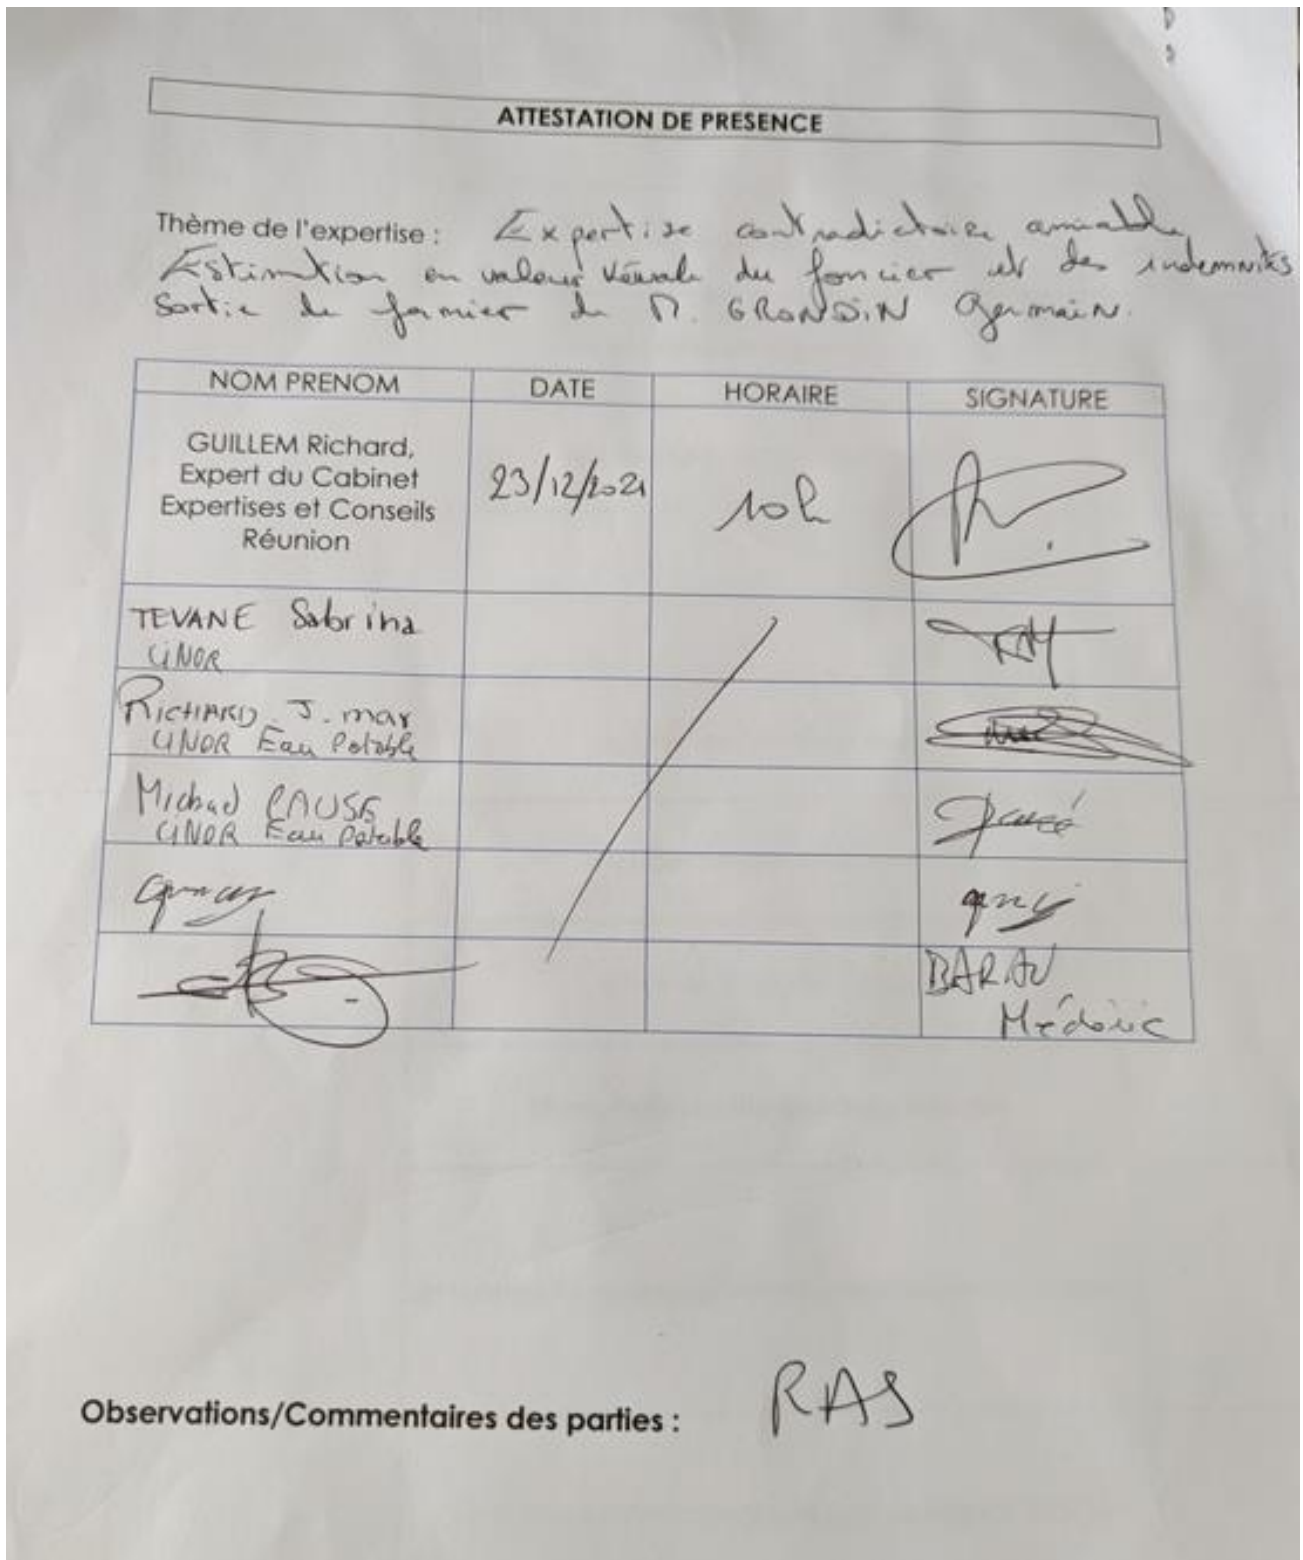 ATTESTATION DE PRESENCE
Thème de l'expertise : Expertise contradictoire amiable
Estimation en valeur vénale du foncier et des indemnités
Sortie de fermier de M. GRONDIN Germain.
NOM PRENOM DATE HORAIRE SIGNATURE
GUILLEM Richard,
Expert du Cabinet
Expertises et Conseils
Réunion
23/12/2021 10h
TEVANE Sabrina
CINOR
RICHARD J. mar
CINOR Eau Potable
Michael CAUSE
CINOR Eau Potable
BARAU
Médéric
Observations/Commentaires des parties : RAS